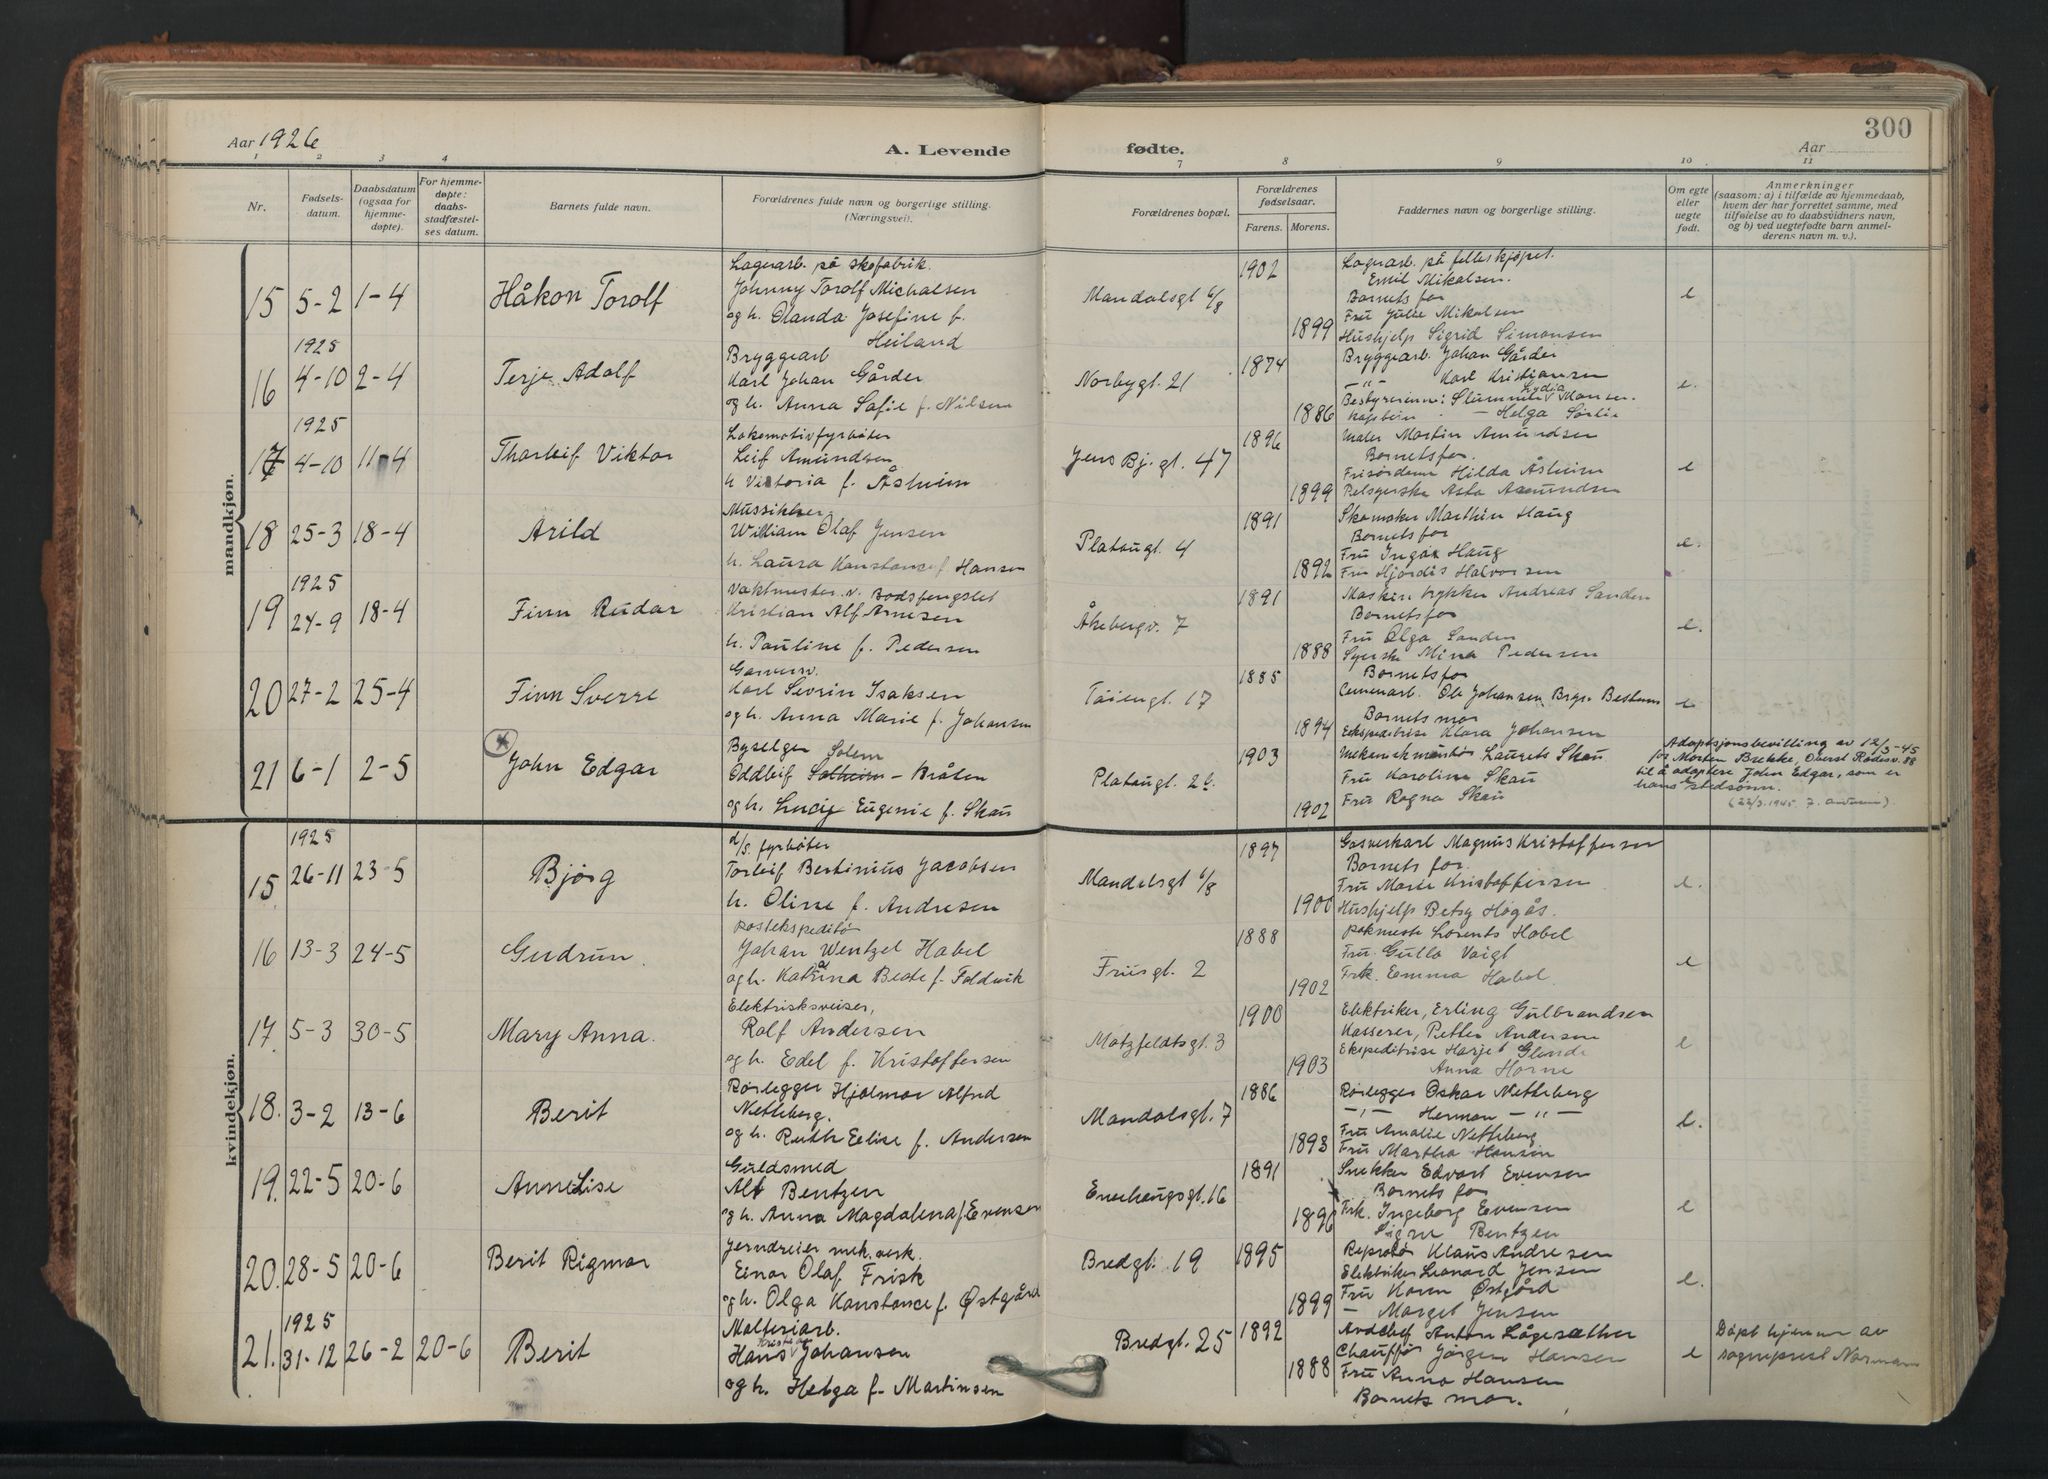 300
Aar 1926
A. Levende
fødte.
Aar
1 2 3 4
7 8 9 10 11
Nr.
Fødsels-
datum.
Daabsdatum
(ogsaa for
hjemme-
døpte).
For hjemme-
døpte:
daabs-
stadfæstel-
ses datum.
Barnets fulde navn.
Forældrenes fulde navn og borgerlige stilling.
(Næringsvei).
Forældrenes bopæl.
Forældrenes
fødselsaar.
Farens. Morens.
Faddernes navn og borgerlige stilling.
Om egte
eller
uegte
født.
Anmerkninger
(saasom: a) i tilfælde av hjemmedaab,
hvem der har forrettet samme, med
tilføielse av to daabsvidners navn,
og b) ved uegtefødte barn anmel-
derens navn m. v.).
mandkjøn.
15 5-2 1-4 Håkon Torolf
Lagerarb. på skofabrik.
Johnny Torolf Michalsen
og h. Olanda Josefine f.
Heiland
Mandalsgt 6/8
1902
1899
Lagerarb. på felleskjøpet.
Emil Mikalsen.
Barnets far
Fru Julie Mikalsen
Hushjelp Sigrid Simonsen
e
1925
16 4-10 2-4 Terje Adolf
Bryggearb
Karl Johan Gårder
og h. Anna Sofie f. Nilsen
Norbygt. 21
1874
1886
Bryggearb. Johan Gårder
-"- Karl Kristiansen
Lydia
Hansen.
- Helga Sørlie
e.
1925
17 4-10 11-4 Thorleif Viktor
Lokomotivfyrbøter
Leif Amundsen
h Victoria f. Åsheim
Jens Bj. gt. 47
1896
1899
Maler Martin Amundsen
Barnets far.
Frisørdame Hilda Åsheim
Pelsyerske Asta Amundsen
e
18 25-3 18-4 Arild
Mussikker
William Olaf Jensen
h. Laura Konstance f. Hansen
Plataugt. 4
1891
1892
Skomaker Marthin Haug
Barnets far
Fru Inga Haug
Fru Hjørdis Halvorsen
e.
1925
19 24-9 18-4 Finn Rudar
Vaktmester v. Bodsfengslet
Kristian Alf Arnesen
h. Pauline f. Pedersen
Åkebergv. 7
1891
1888
Maskintrykker Andreas Sanden
Barnets far
Fru Olga Sanden
Syerske Mina Pedersen
e.
20 27-2 25-4 Finn Sverre
Gasverv.
Karl Sevrin Isaksen
og h. Anna Marie f. Johansen
Tøiengt. 17
1885
1894
Barnets far
Cemenarb. Ole Johansen Bryn Bestum
Barnets mor
Ekspeditrise Klara Johansen
e
21 6-1 2-5 John Edgar
Byselger Solem
Oddleif Solheim - Bråten
og h. Lucie Eugenie f. Skau
Plataugt. 2b.
1903
1902
Mekanikmester Laurits Skau
Fru Karoline Skau
Fru Ragna Skau
Adoptsjonsbevilling av 12/3-45
for Morten Brekke, Øverst Rodesv. 88
til å adoptere John Edgar, som er
hans stedsønn.
kvindekjøn.
1925
15 26-11 23-5 Bjørg
d/s. fyrbøter
Torleif Bertinius Jacobsen
h. Oline f. Andresen
Mandalsgt 6/8
1897
1900
Gasverkarl Magnus Kristoffersen
Barnets far.
Fru Marie Kristoffersen
Hushjelp Betsy Høgås.
e.
16 13-3 24-5 Gudrun.
postekspeditør
Johan Wentzel Habel
og h. Katrina Beate f. Foldvik
Friisgt. 2
1888
1902
pakmester Lorents Habel
Fru Gulla Voigt
Frk. Emma Habel
e
17. 5-3 30-5 Mary Anna.
Elektriskeviser,
Rolf Andersen
og h. Edel f. Kristoffersen
Motzfeldtsgt. 3
1900
1903
Elektriker, Erling Gulbrandsen
Kasserer, Petter Andersen
Ekspeditrise Harjet Glende
Anna Horne
e
18. 3-2 13-6 Berit
Rørlegger Hjalmar Alfred
Netteberg.
og h. Ruth Elise f. Andersen
Mandalsgt. 7
1886
1893
Rørlegger Oskar Netteberg
-"- Herman -"-
Fru Amalie Netteberg
Fru Martha Hansen
e.
19. 22-5 20-6 Anne Lise
Guldsmed
Alf Bentzen
og h. Anna Magdalena f. Evensen
Enerhaugsgt. 16
1891
1896
Snekker Edvart Evensen
Barnets far
Frk. Ingeborg Evensen
Signe Bentzen
e
20. 28-5 20-6 Berit Rigmor
Jerndreier mek. verk.
Einar Olaf Frisk
og h. Olga Konstance f. Østgård
Bredgt. 19
1895
1899
Repratør Klaus Andresen
Elektriker Leonard Jensen
Fru Karen Østgård
- Marget Jensen
e.
1925
21. 31-12 26-2 20-6 Berit
Malteriarb.
Hans Johansen
og h. Helga f. Martinsen
Bredgt. 25
1892
1888
Avdchef Anton Lågesæther
Chauffør Jørgen Hansen
Fru Anna Hansen
Barnets mor.
e
Døpt hjemme av
sogneprest Normann